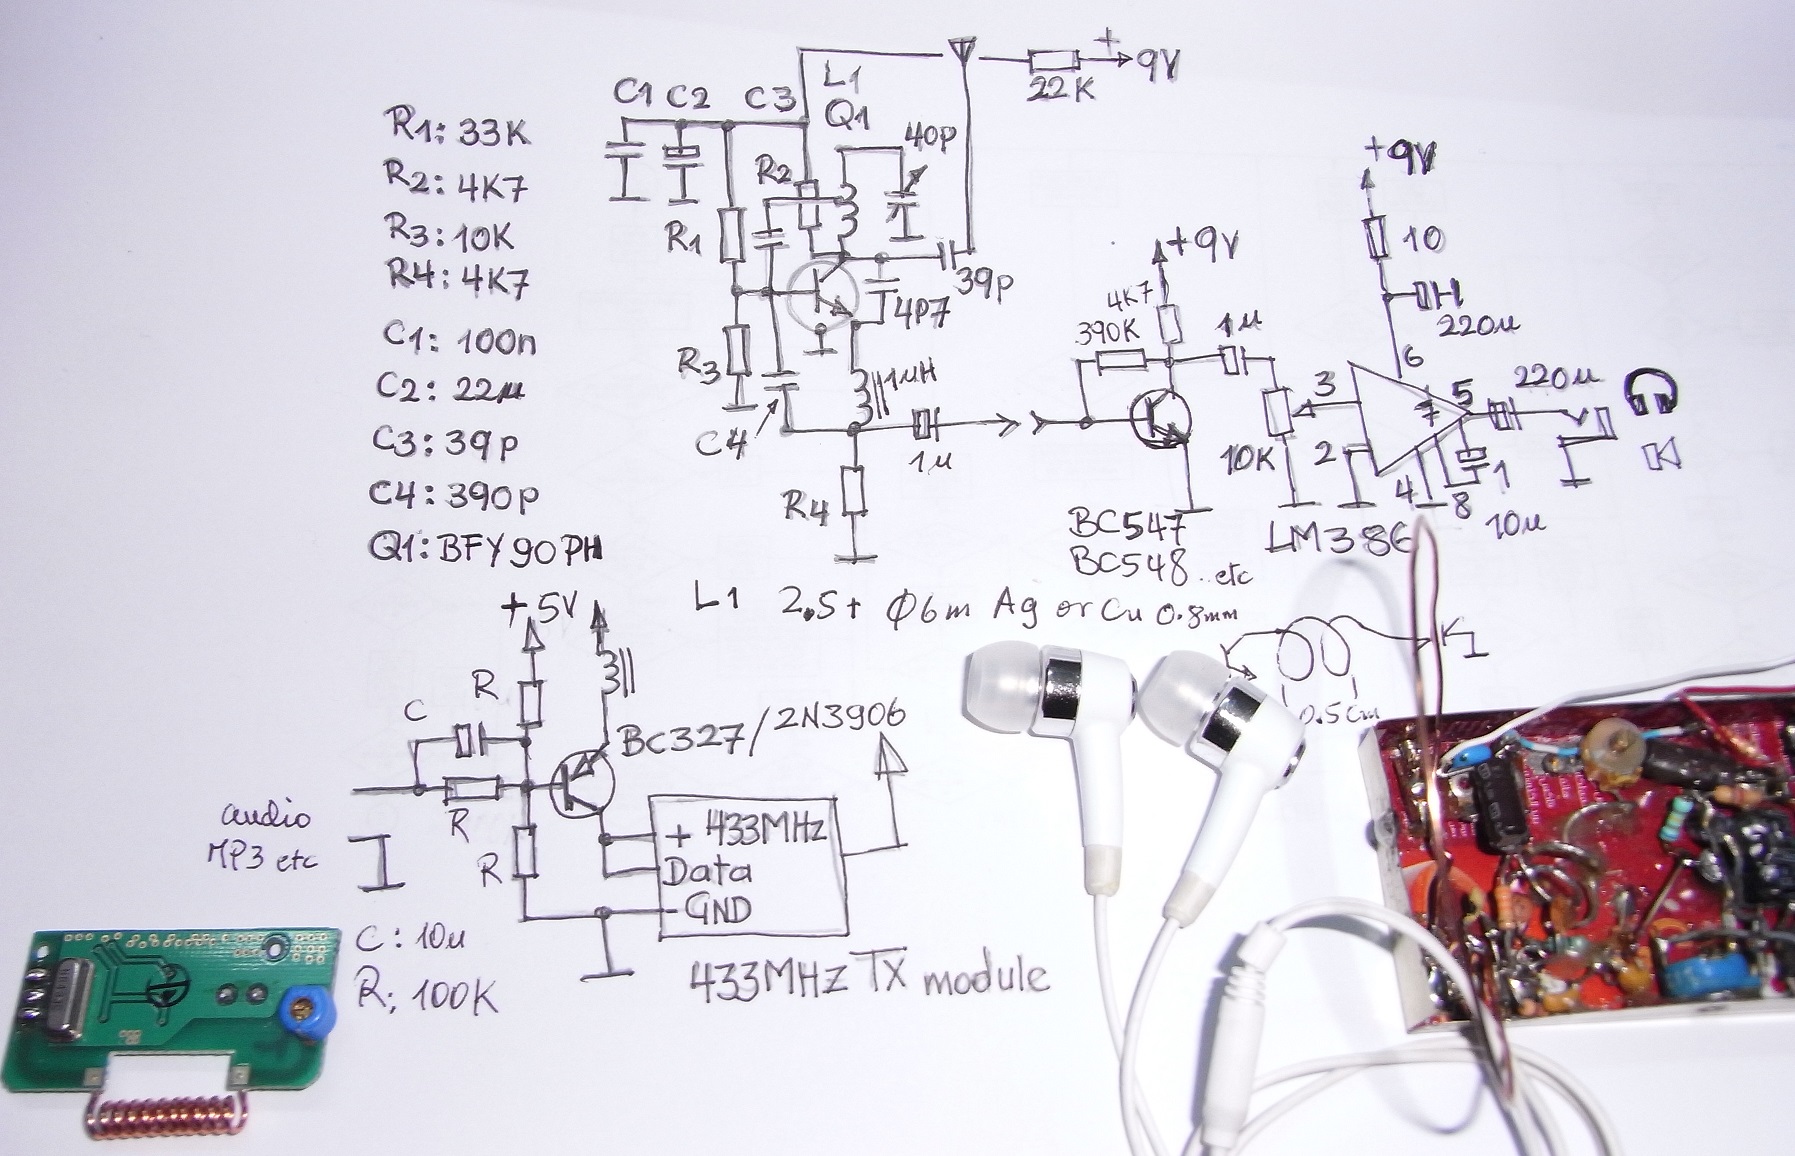 R1: 33K
R2: 4K7
R3: 10K
R4: 4K7
C1: 100n
C2: 22µ
C3: 39p
C4: 390p
Q1: BFY90PH
C1 C2 C3
L1
Q1
40p
22K
+
9V
R2
R1
39p
4P7
R3
C4
1µH
1µ
R4
+9V
4K7
390K
1µ
10K
BC547
BC548..etc
+9V
10
220µ
6
3
7
5
220µ
2
4
8
1
10µ
LM386
L1 2.5t Ø6m Ag or Cu 0.8mm
0.5cm
+5V
R
C
BC327/2N3906
audio
MP3 etc
R
R
+ 433MHz
Data
- GND
433MHz TX module
C: 10µ
R; 100K